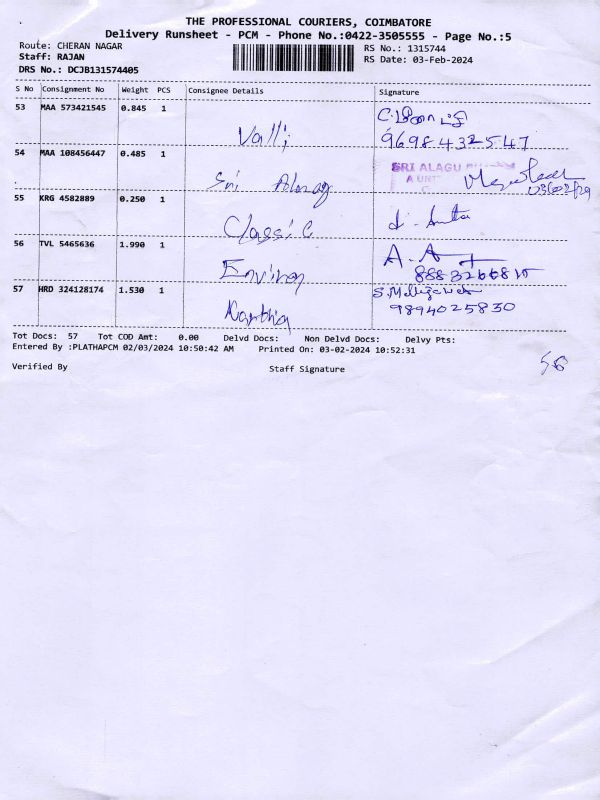 THE PROFESSIONAL COURIERS, COIMBATORE
Delivery Runsheet - PCM - Phone No.:0422-3505555 - Page No.:5
Route: CHERAN NAGAR RS No.: 1315744
Staff: RAJAN RS Date: 03-Feb-2024
DRS No.: DCJB131574405
S No Consignment No Weight PCS Consignee Details Signature
53 MAA 573421545 0.845 1
Valli 9698432547
54 MAA 108456447 0.485 1 SRI ALAGU
Sri
55 KRG 4582889 0.250 1
Classic
56 TVL 5465636 1.990 1
57 HRD 324128174 1.530 1
9894025830
Tot Docs: 57 Tot COD Amt: 0.00 Delvd Docs: Non Delvd Docs: Delvy Pts:
Entered By :PLATHAPCM 02/03/2024 10:50:42 AM Printed On: 03-02-2024 10:52:31
Verified By Staff Signature